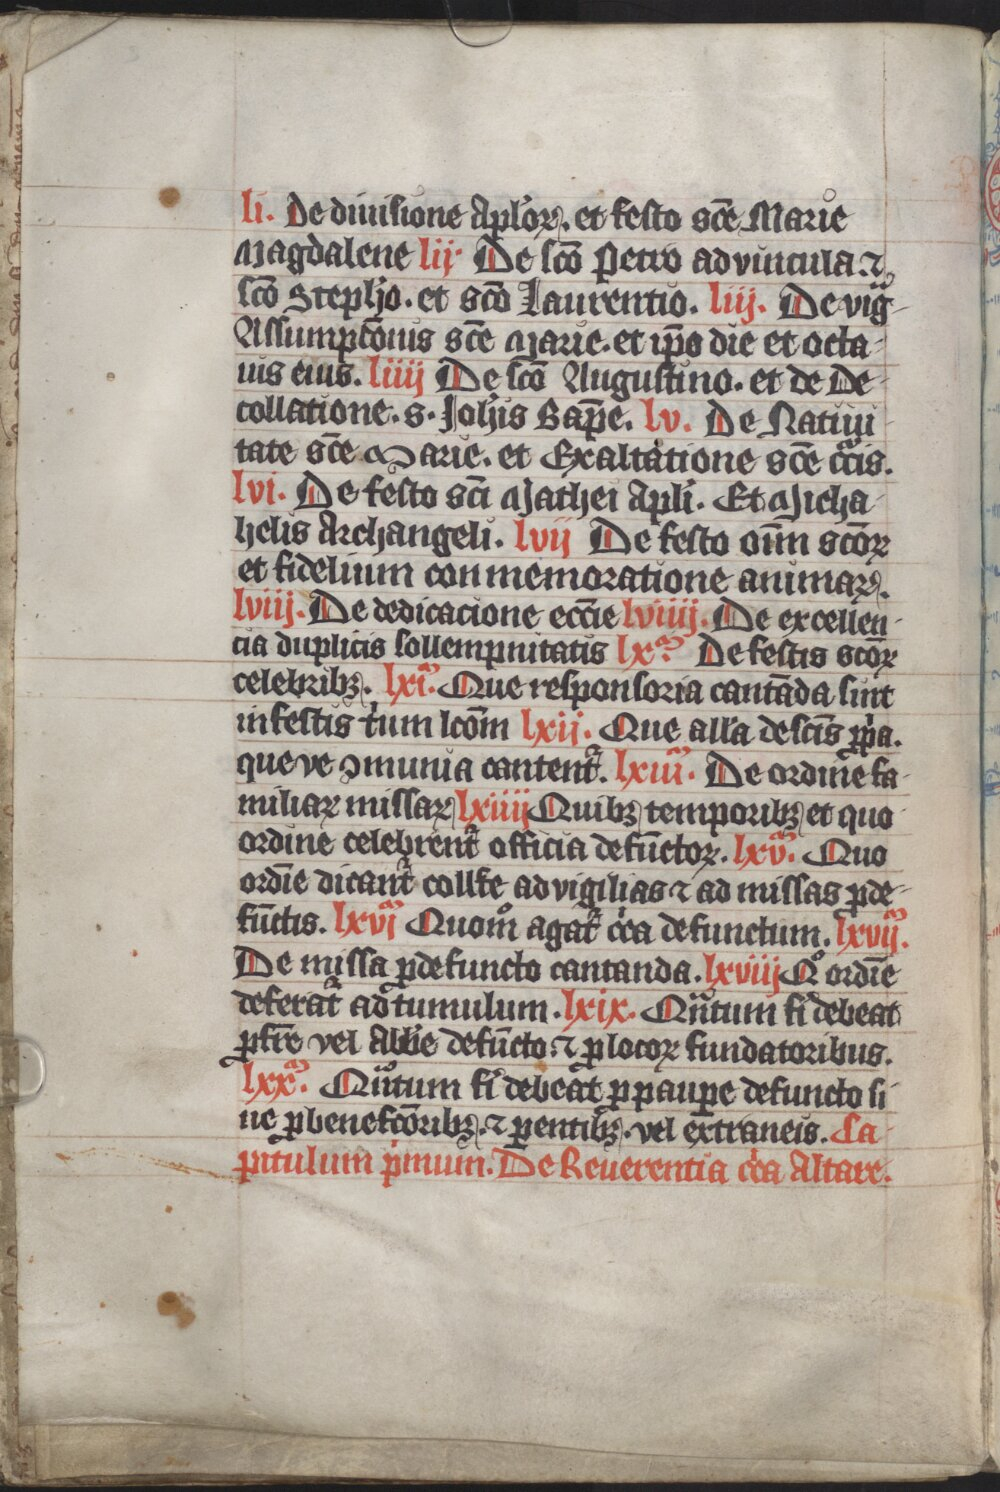 li. De diuisione Apl'oꝝ. et festo sc̄e Marie
Magdalene lij. De sc̄o Petro ad vincula ⁊
sc̄o Stephō. et sc̄o Laurentio. liij. De viḡ-
Assumpc̄onis sc̄e Marie. et ip̄o die et octa-
uis eius. liiij De sc̄o Augustino. et de De-
collatione. s. Joh̄is Bap̄e. lv. De Natiui-
tate sc̄e Marie. et Exaltatione sc̄e cͣcis.
lvi. De festo sc̄i Mathei Apl'i. Et Micha-
helis Archangeli. lvij De festo om̄ scōꝝ
et fidelium conmemoratione animaꝝ.
lviij. De dedicacione ecc̄ie lviiij. De excellen-
cia duplicis sollempnitatis lxͫ. De festis scōꝝ
celebribꝫ. lxiͫ. Que responsoria cantāda sint
in festis t'ium lc̄om lxij. Que all'a de sc̄is ꝓp'a.
que ve ꝯmunia cantent᷑. lxiiiͫ. De ordine fa-
miliaꝝ missaꝝ lxiiij Quibꝫ temporibꝫ et quo
ordine celebrent᷑ officia defūctoꝝ. lxvͫ. Quo
ordīe dicant᷑ coll'te ad vigilias ⁊ ad missas ꝑ de-
fūctis. lxviͫ Quom̊ agat᷑ c'ca defunctum. lxvijͫ.
De missa ꝑ defuncto cantanda. lxviij Qͦ ordīe
deferat᷑ ad tumulum. lxix. Qͣntum fi'debeat
ꝑ fr̄e vel Abb'e defūcto. ⁊ ꝑ locoꝝ fundatoribus.
lxxͫ. Qͣntum fi'debeat ꝑ paupe defuncto si-
ue ꝑ benefc̄oribꝫ. ⁊ ꝑentibꝫ. vel extraneis. Ca-
pitulum p'mum. De Reuerentia c'ca Altare.